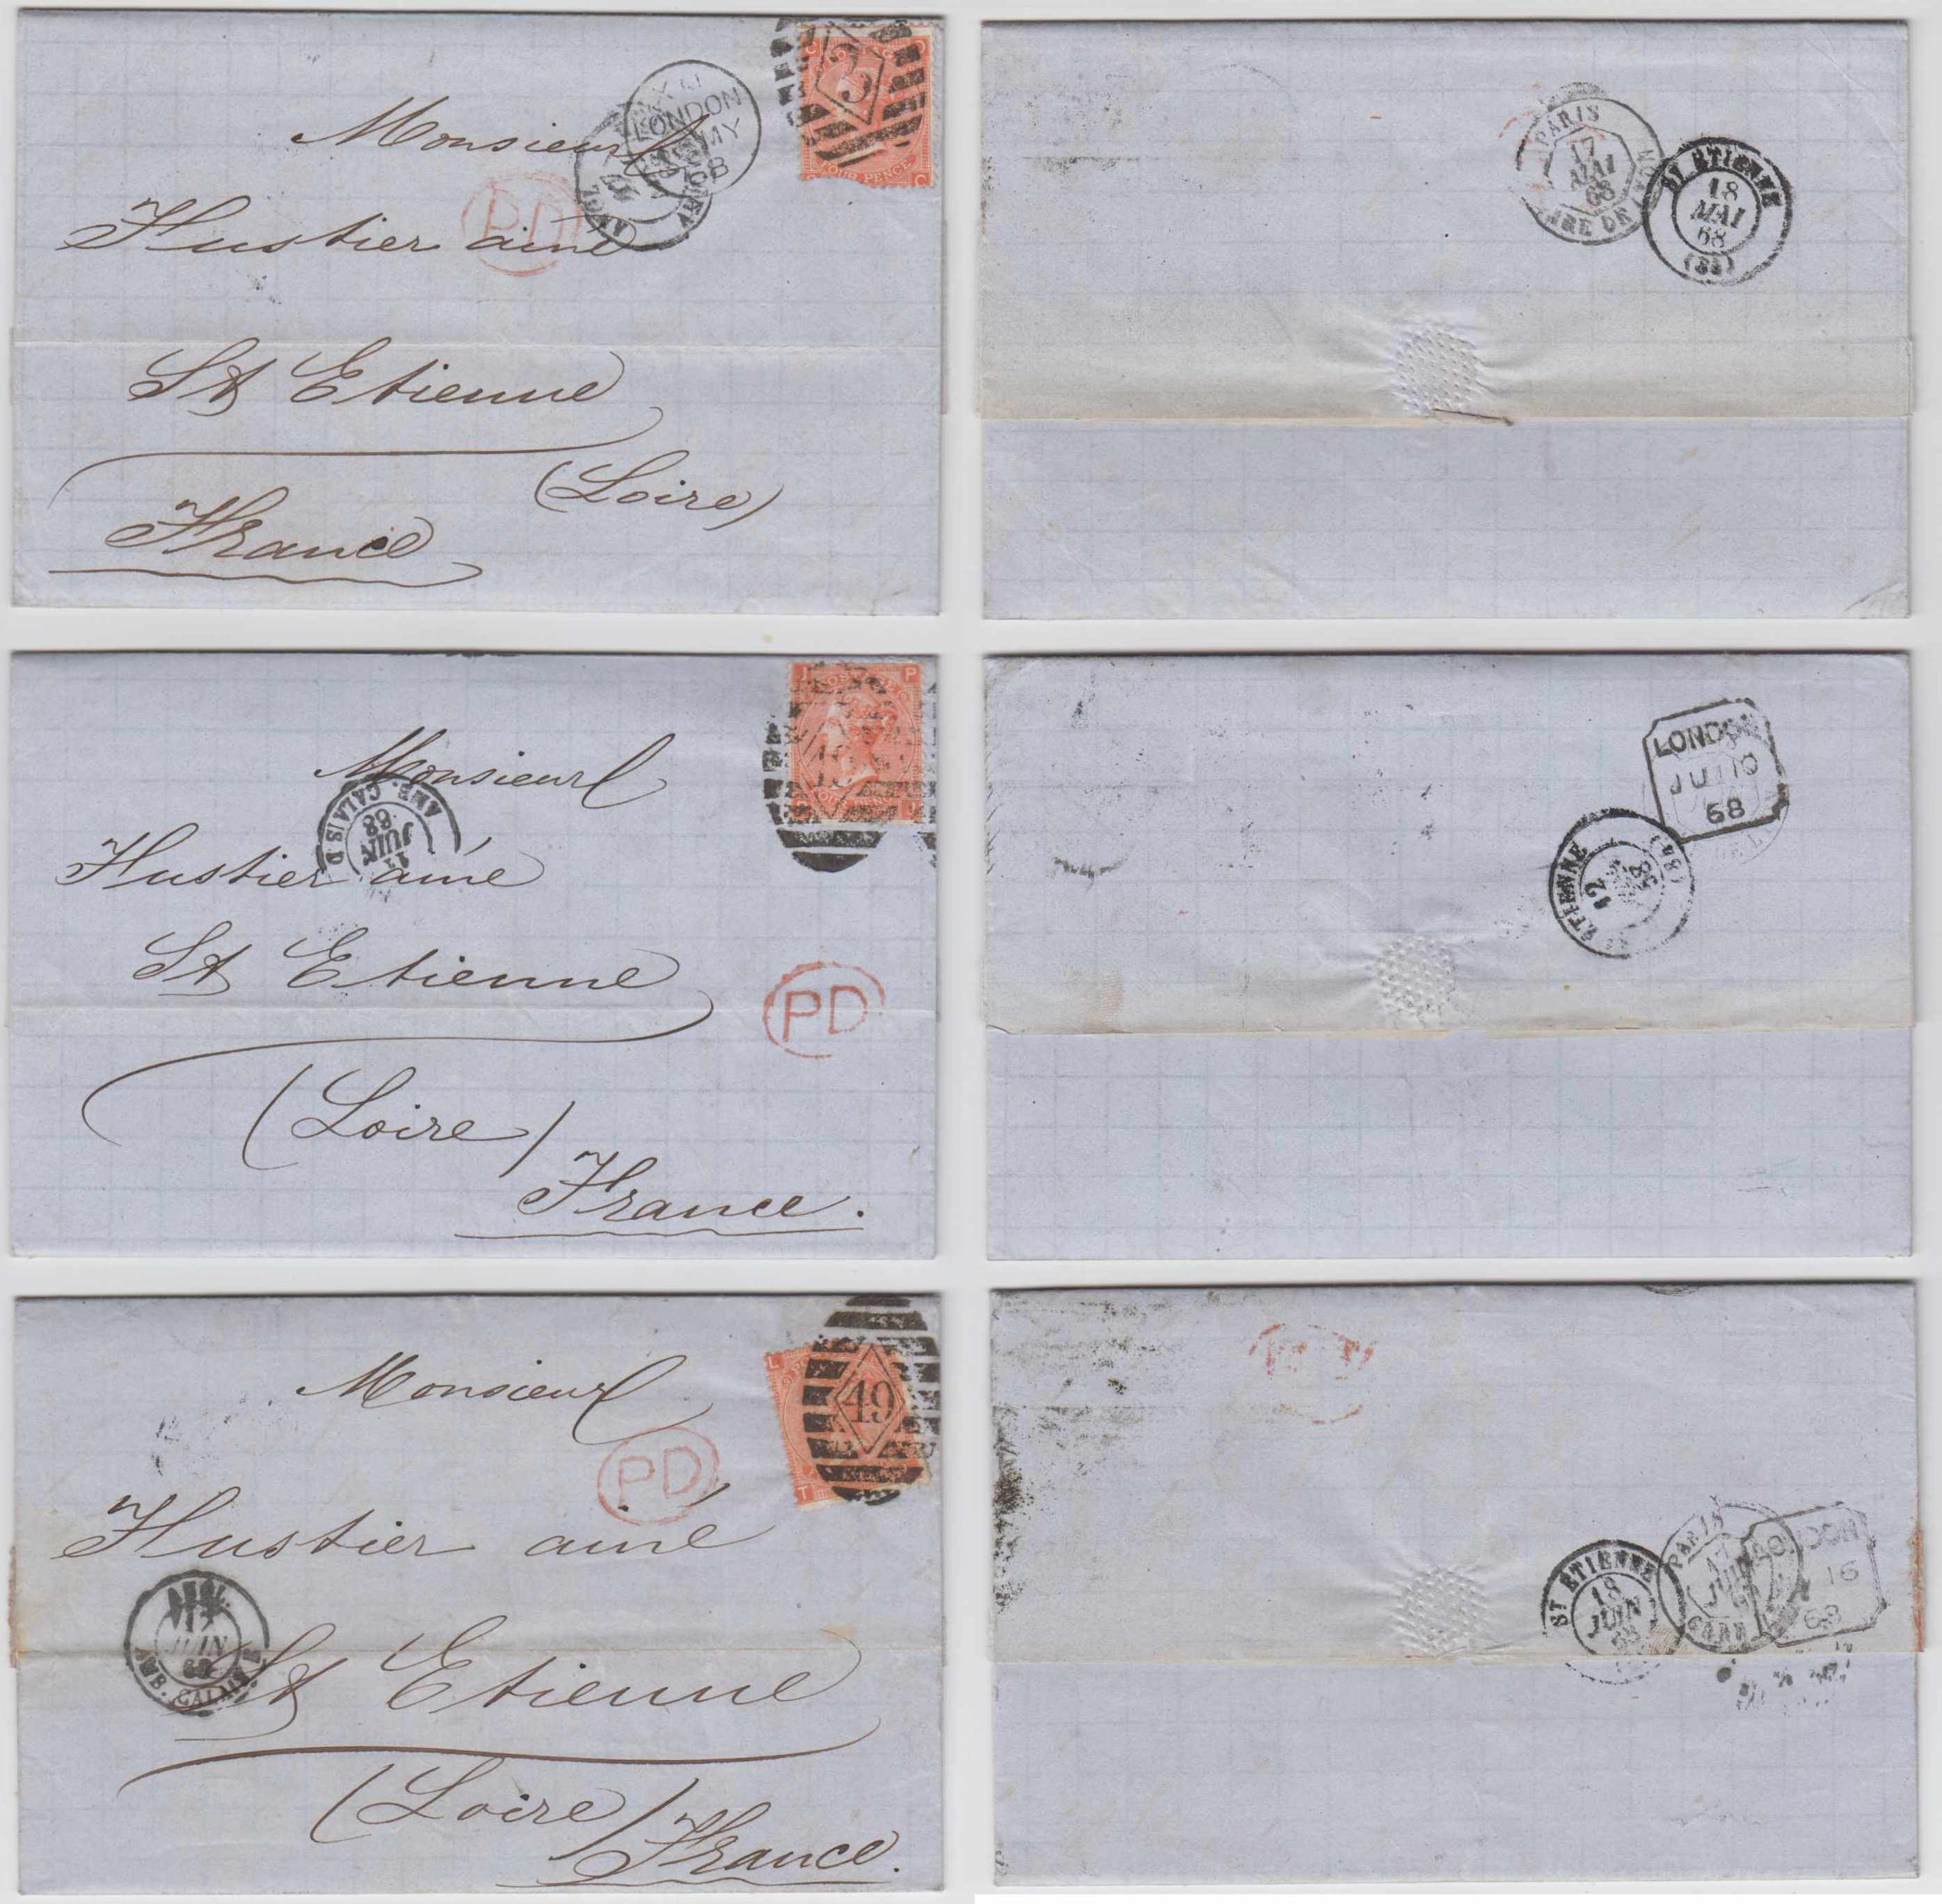 Monsieur
Hustier ainé
St Etienne
(Loire)
France
LONDON
MY
68
PD
ANGL
3
POSTAGE
FOUR PENCE
C
C
PARIS
17
MAI
68
GARE DE LYON
ST ETIENNE
18
MAI
68
Monsieur
Hustier ainé
St Etienne
(Loire)
France.
AMB. CALAIS
JUIN
68
PD
POSTAGE
P
LONDON
JU 10
68
ETIENNE
12
68
Monsieur
Hustier ainé
St Etienne
(Loire)
France.
PD
49
L
T
ANGL.
17
JUIN
68
AMB. CALAIS
ST ETIENNE
18
JUIN
68
PARIS
17
JUIN
GARE
LONDON
16
68